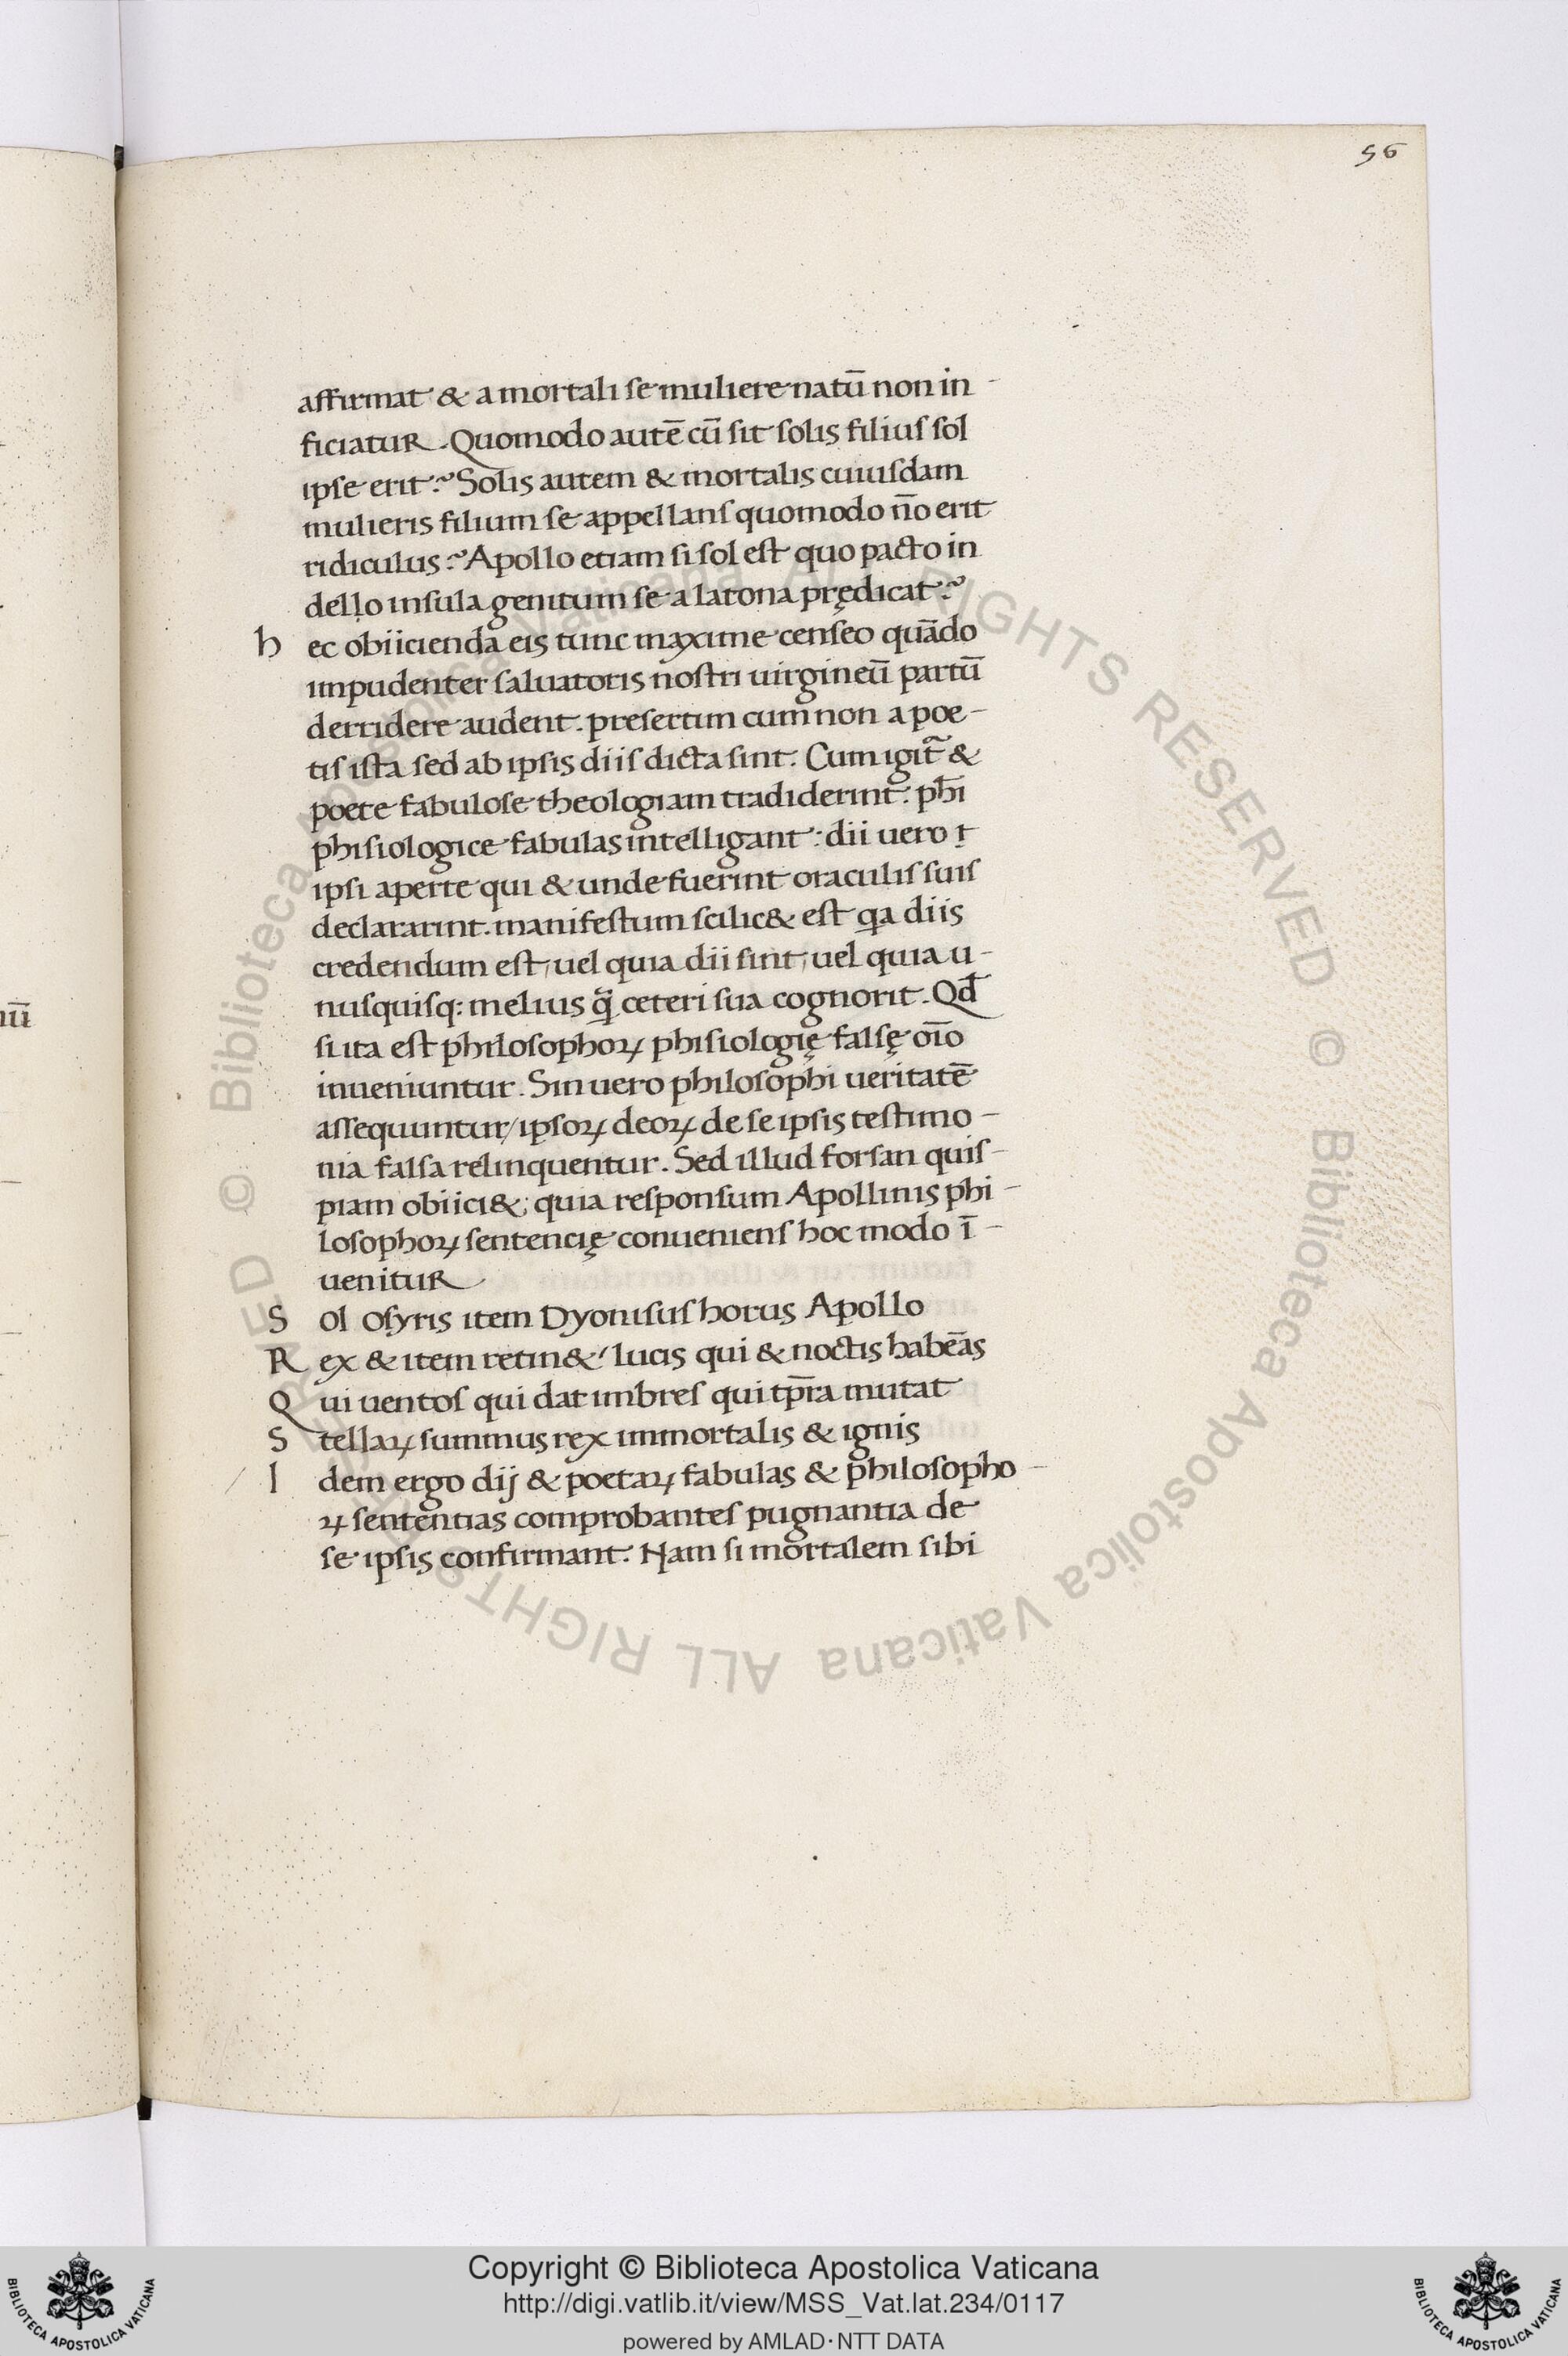 56
affirmat & a mortali se muliere natū non in-
ficiatur. Quomodo autē cū sit solis filius sol
ipse erit? Solis autem & mortalis cuiusdam
mulieris filium se appellans quomodo n̄o erit
ridiculus? Apollo etiam si sol est quo pacto in
dello insula genitum se a latona prędicat?
hec obiicienda eis tunc maxime censeo quādo
impudenter saluatoris nostri uirgineū partū
derridere audent. presertim cum non a poe-
tis ista sed ab ipsis diis dicta sint. Cum igit̃ &
poete fabulose theologiam tradiderint: ph̄i
phisiologice fabulas intelligant: dii uero
ipsi aperte qui & unde fuerint oraculis suis
declararint. manifestum scilic& est qa diis
credendum est, uel quia dii sint, uel quia u-
nusquisq: melius q̃ ceteri sua cognorit. Qđ
si ita est philosophoꝝ phisiologię falsę oīo
inueniuntur. Sin uero philosophi ueritatē
assequuntur/ ipsoꝝ deoꝝ de se ipsis testimo-
nia falsa relinquentur. Sed illud forsan quis-
piam obiici&; quia responsum Apollinis phi-
losophoꝝ sentencię conueniens hoc modo ī-
uenitur
Sol Osyris item Dyonisus horus Apollo
Rex & item retin& lucis qui & noctis habēas
Qui uentos qui dat imbres qui tp̄ra mutat
Stellaꝝ summus rex immortalis & ignis
Idem ergo dij & poetaꝝ fabulas & philosopho-
ꝝ sententias comprobantes pugnantia de
se ipsis confirmant. Nam si mortalem sibi
nū
© Biblioteca Apostolica Vaticana ALL RIGHTS RESERVED
© Biblioteca Apostolica Vaticana ALL RIGHTS RESERVED
BIBLIOTECA APOSTOLICA VATICANA
Copyright © Biblioteca Apostolica Vaticana
http://digi.vatlib.it/view/MSS_Vat.lat.234/0117
powered by AMLAD·NTT DATA
BIBLIOTECA APOSTOLICA VATICANA